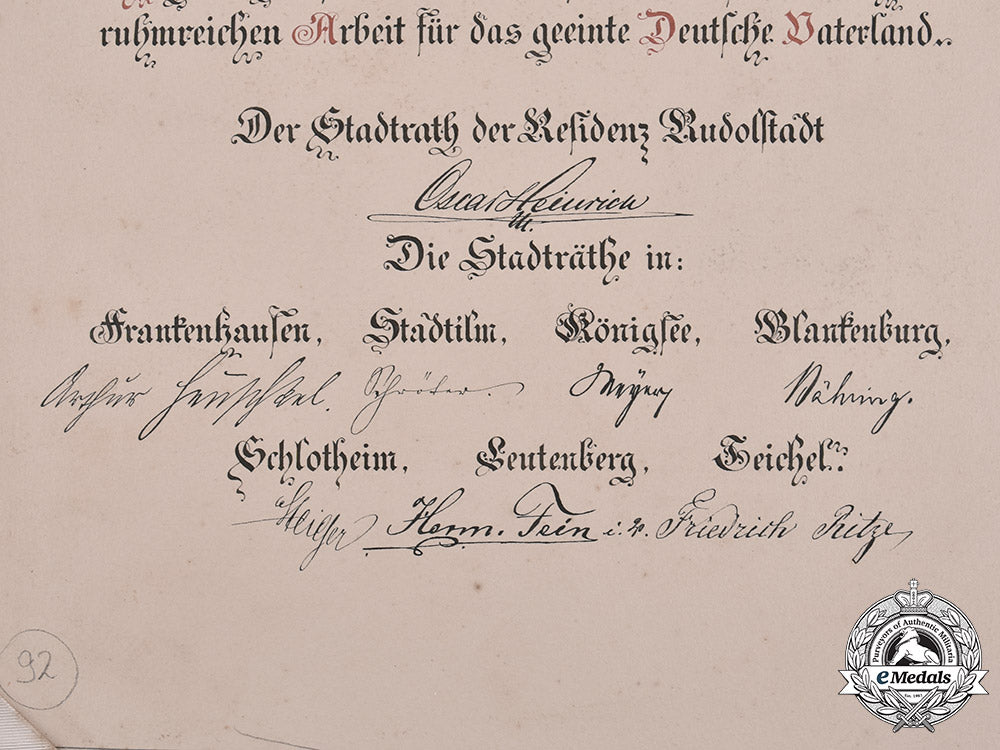 ruhmreichen Arbeit für das geeinte Deutsche Vaterland.
Der Stadtrath der Residenz Rudolstadt
Oscar Heinrich
Die Stadträthe in:
Frankenhausen, Stadtilm, Königsee, Blankenburg,
Arthur Heuschkel. Schröter. Meyer
Schlotheim, Leutenberg, Teichel.
Herm. Tein i. v. Friedrich Ritze
92
Purveyors of Authentic Militaria
eMedals